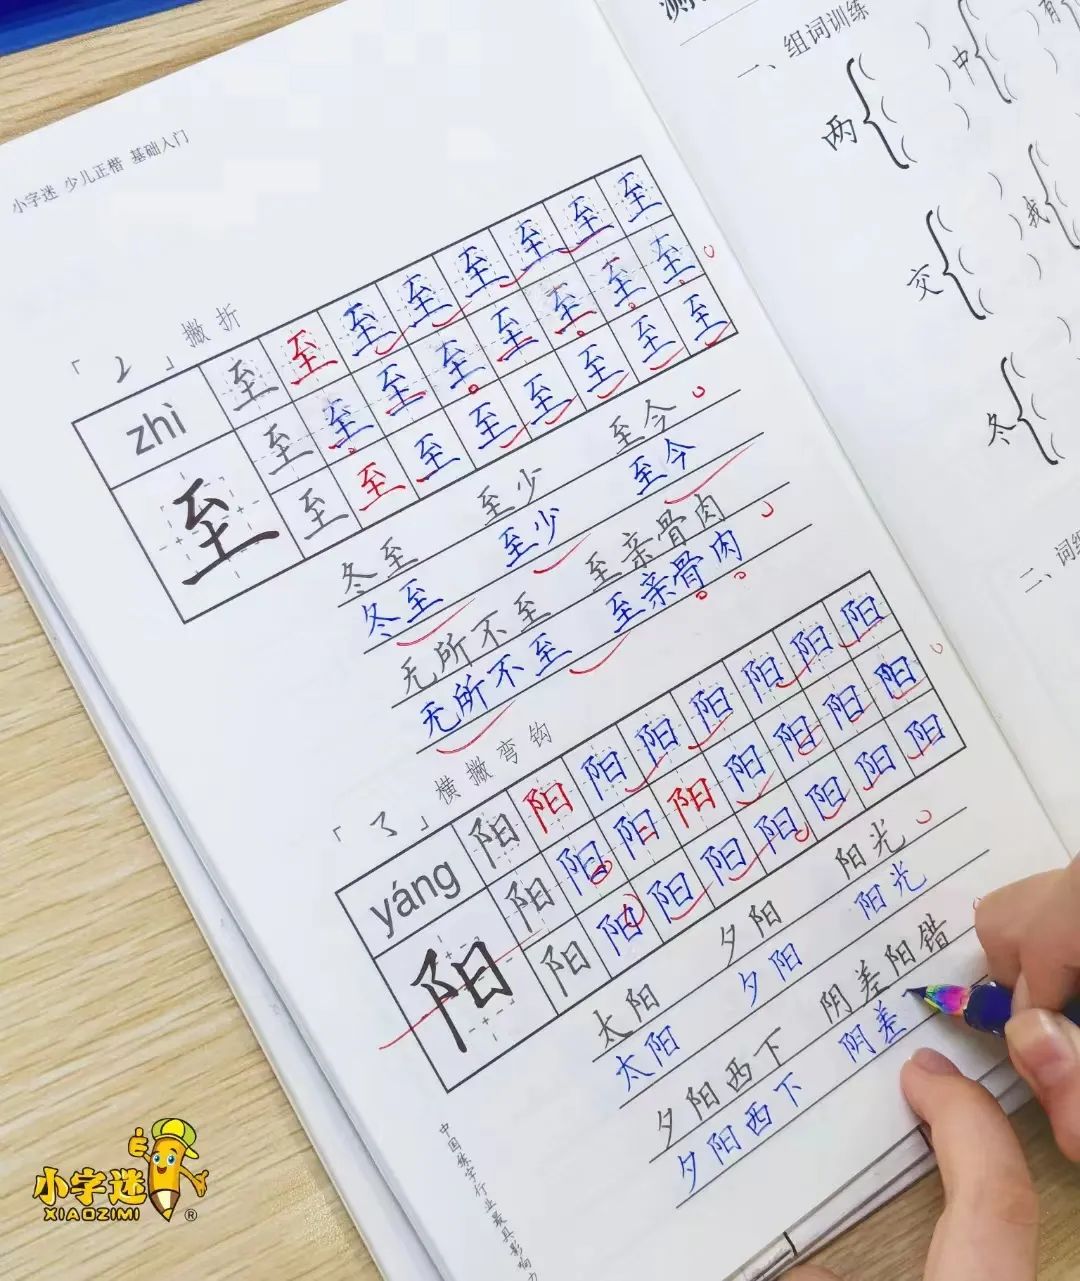 小字迷 少儿正楷 基础入门
「 ㇜ 」 撇折
zhì
至
至 至 至 至 至 至 至 至
至 至 至 至 至 至 至 至
至 至 至 至 至 至 至 至
冬至 至少 至今
冬至 至少 至今
无所不至 至亲骨肉
无所不至 至亲骨肉
「 ㇌ 」 横撇弯钩
yáng
阳
阳 阳 阳 阳 阳 阳 阳 阳
阳 阳 阳 阳 阳 阳 阳 阳
阳 阳 阳 阳 阳 阳 阳 阳
太阳 夕阳 阳光
太阳 夕阳 阳光
夕阳西下 阴差阳错
夕阳西下 阴差
中国练字行业最具影响力
小字迷
XIAOZIMI®
测
一、组词训练
两 中 有
交 我
冬
二、词组